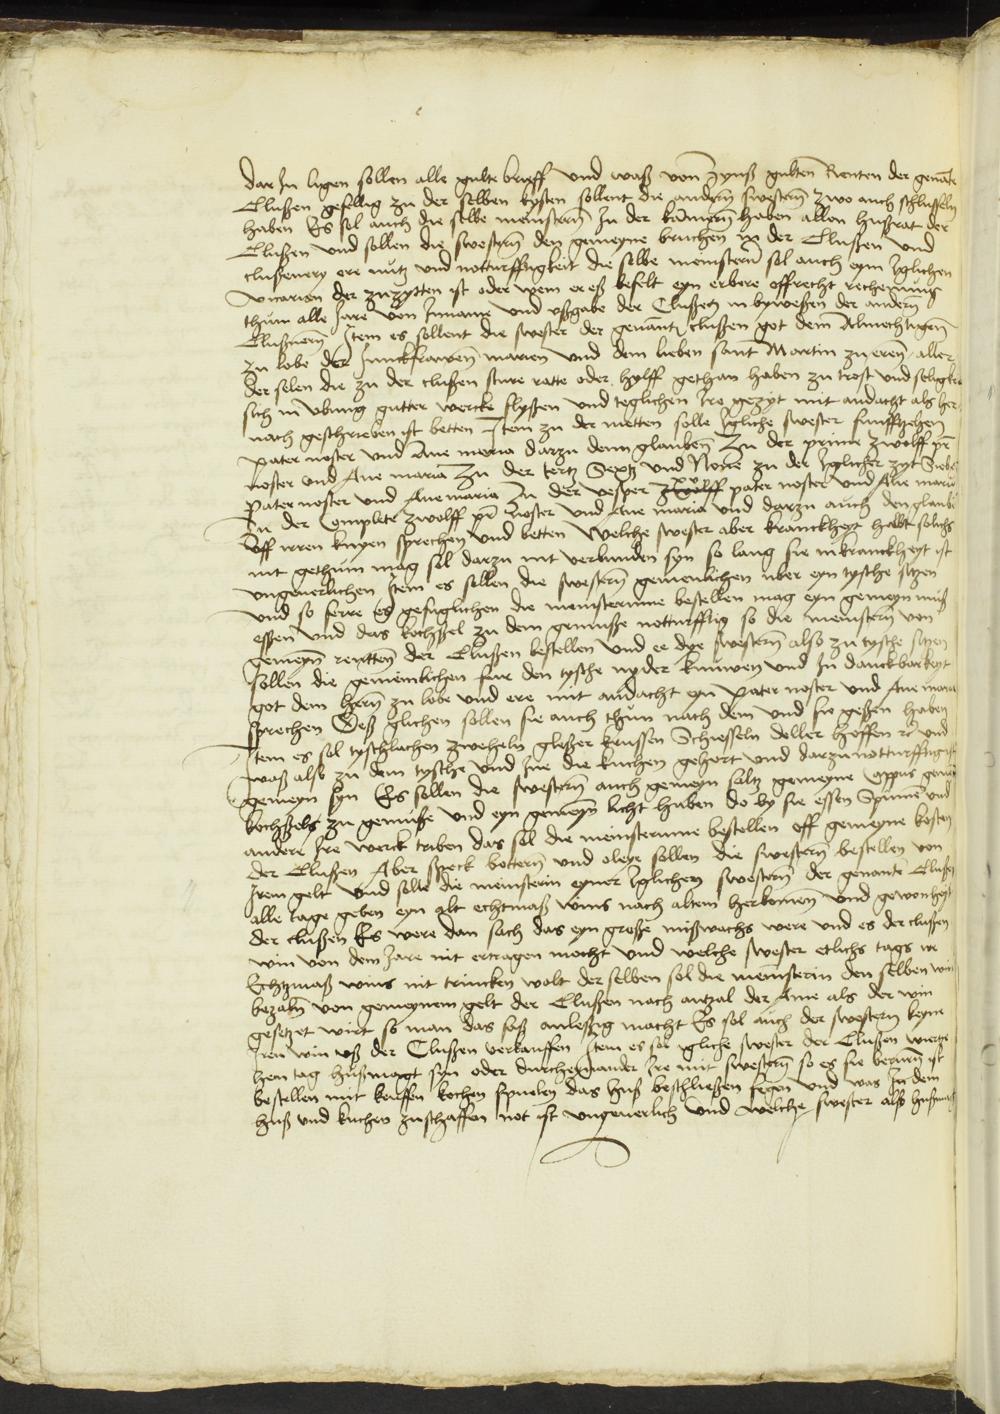 dar In ligen sollen alle gulte brieff und waß von Zynß gulten Renten der genāte
Clußen gefellig zu der selben kysten sollent die andern swestern zwo auch schlusseln
haben Es sol auch die selbe meinstern In der kamern haben allen hußrat der
Clußen und sollen die swestern den gemeyne bruchen in der Clußen und
clußenery ere nutz und notturfftigkeit die selbe meinstern sol auch eym Iglichen
vicarien der zuzytten ist oder wem er eß befelt eyn erbere offrecht rechenung
thun alle Jare von Inname und ußgabe der Clußen in bywesen der andern
Clußnern Item es sollent die swester der genant clußen got dem Almechtigen
zu lobe der Junckfrawen marien und dem lieben sant Martin zu eren aller
der selen die zu der clußen sture ratte oder hylff gethan haben zu trost und seligkeit
sich in ubung gutter wercke flyssen und teglichen Ire gezyt mit andacht als her
nach geschrieben ist betten Item zu der metten solle Igliche swester funfftzehen
pater noster und Ave maria darzu denn glauben Zu der prime zwolff pr̄
noster und Ave maria Zu der tertz Sextz und None zu der Iglicher zyt Siebē
pater noster und Ave maria Zu der vesper zwolff pater noster und Ave maria
Zu der Complete zwolff pr̄ noster und Ave maria und darzu auch den glaubē
Uff irren knyen sprechen und betten Welche swester aber kranckheyt halbe solichs
nit gethun mag sol darzu nit verbunden syn so lang sie in kranckheyt ist
ungeuerlichen Item es sollen die swestern gemeinlichen uber eyn tysche sitzen
und so ferre es gefuglichen die meinsterinne bestellen mag eyn gemeyn muß
essen und das kochsel zu dem gemusse notturfftig so die meinstern von
gemeyn rentten der Clußen bestellen und ee dye swestern also zu tysche sitzen
sollen die gemeinlichen fur den tysche nyder knuwen und In danckbarkeyt
got dem hern zu lobe und ere mit andacht eyn pater noster und Ave maria
sprechen Deß glichen sollen sie auch thun nach dem und sie gessen haben
Item es sol tyschlachen zweheln glesser krussen Schiesseln deller heffen rc und
waß also zu dem tysche und Inn die kuchen gehort und darzu notturfftig ist
gemeyn syn Es sollen die swestern auch gemeyn saltz gemeyne Cappus gemeyn
kochsels zu gemuse und eyn gemeyn licht haben do by sie essen Spinnē und
andere Ire werck triben das sol die meinsterinne bestellen off gemeyne kosten
der Clußen Aber speck bottern und oleye sollen die swestern bestellen von
Irem gelt Und solle die meinsterin eyner Iglichen swestern der genante Clußen
alle tage geben eyn alt echtmaß wins nach altem herkomen und gewonheyt
der clußen Es were dan sach das eyn grosse mißwachs were und es der clußen
win von dem Jare nit ertragen mocht und welche swester etlichs tags ir
Echtzmaß wins nit trincken wolt der selben sol die meinsterin den selben win
bezaln von gemeynem gelt der Clußen nach antzal der Ame als der win
gesetzet wirt so man das faß anlessig macht Es sol auch der swestern keyne
Iren win uß der Clußen verkauffen Item es sol Igliche swester der Clußen
hen tag hußmagt syn oder durch eynander Ire mit swestern so es sie beruren ist
bestellen mit kauffen kochen spuolen das huß beschliessen fegen und was In dem
huß und kuchen zuschaffen not ist ungeuerlich Und welche swester also hußmagt